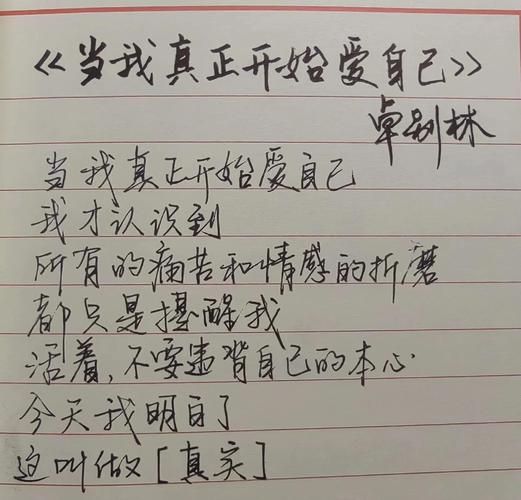 《当我真正开始爱自己》
卓别林
当我真正开始爱自己
我才认识到
所有的痛苦和情感的折磨
都只是提醒我
活着,不要违背自己的本心
今天我明白了
这叫做[真实]